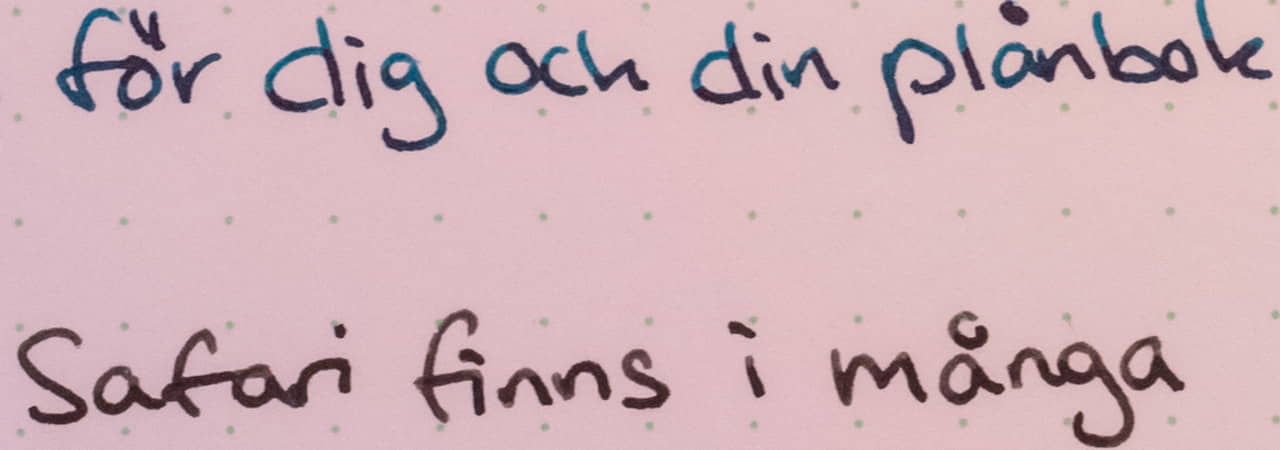 för dig och din plånbok
Safari finns i många